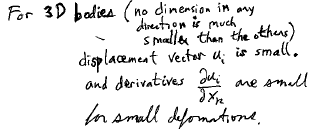 For 3D bodies (no dimension in any
direction is much
smaller than the others)
displacement vector u_i is small.
and derivatives ∂u_i/∂x_k are small
for small deformations.